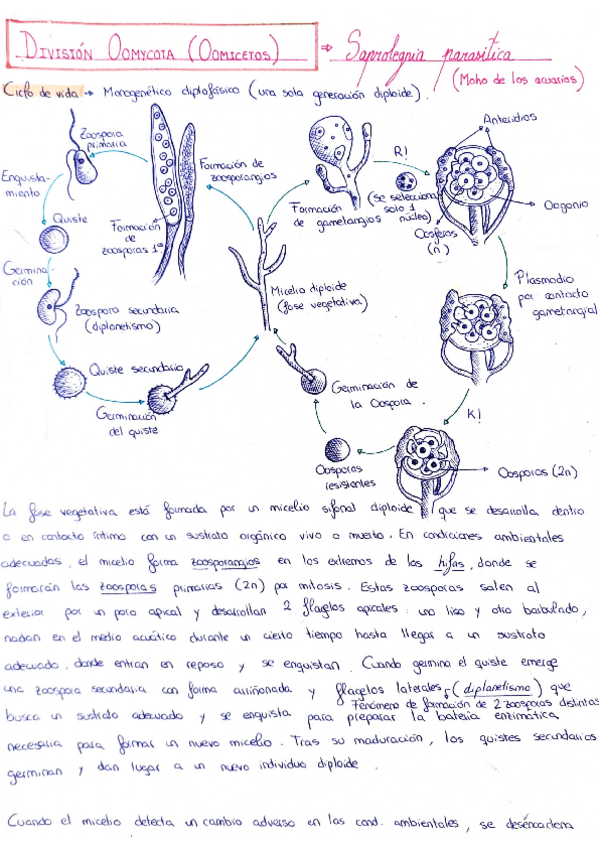 DIVISIÓN OOMYCOTA (OOMICETOS) ⇒ Saprolegnia parasitica
(Moho de los acuarios)
Ciclo de vida → Monogenético diplofásico (una sola generación diploide).
Zoospora
primaria
Enquista-
miento
Quiste
Germina-
ción
Zoospora secundaria
(diplanetismo)
Quiste secundario
Germinación
del quiste
Formación
de
zoosporas 1as
Formación de
zoosporangios
Micelio diploide
(fase vegetativa)
Formación
de gametangios
R!
(se selecciona
solo 1
núcleo)
Anteridios
Oogonio
Oosferas
(n)
Plasmodio
por contacto
gametangial
K!
Oosporas (2n)
Oosporas
resistentes
Germinación de
la Oospora.
La fase vegetativa está formada por un micelio sifonal diploide que se desarrolla dentro
o en contacto íntimo con un sustrato orgánico vivo o muerto. En condiciones ambientales
adecuadas, el micelio forma zoosporangios en los extremos de las hifas, donde se
formarán las zoosporas primarias (2n) por mitosis. Estas zoosporas salen al
exterior por un poro apical y desarrollan 2 flagelos apicales: uno liso y otro barbulado,
nadan en el medio acuático durante un cierto tiempo hasta llegar a un sustrato
adecuado, donde entran en reposo y se enquistan. Cuando germina el quiste emerge
una zoospora secundaria con forma arriñonada y flagelos laterales (diplanetismo) que
Fenómeno de formación de 2 zoosporas distintas
busca un sustrato adecuado y se enquista para preparar la batería enzimática
necesaria para formar un nuevo micelio. Tras su maduración, los quistes secundarios
germinan y dan lugar a un nuevo individuo diploide.
Cuando el micelio detecta un cambio adverso en las cond. ambientales, se desencadena